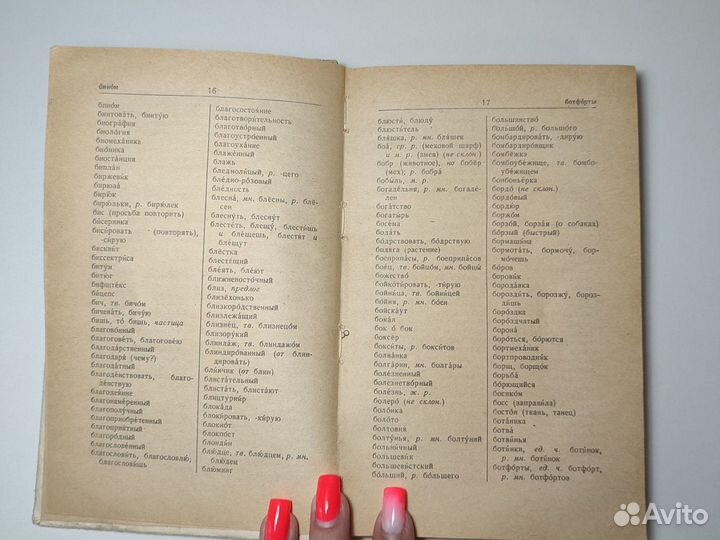 бино́м
16
бино́м
бинтова́ть, бинту́ю
биогра́фия
биоло́гия
биомеха́ника
био́ника
биоста́нция
бипла́н
бирюза́
бирю́к
бирю́льки, р. бирю́лек
бис (просьба повторить)
би́серинка
биси́ровать (повторять),
-си́рую
бискви́т
биссектри́са
биту́м
битю́г
бифште́кс
би́цепс
бич, тв. бичо́м
бичева́ть, бичу́ю
бишь, то́ бишь, частица
благогове́ть, благогове́ю
благода́рственный
благодаря́ (чему?)
благода́тный
благоде́нствовать, благо-
де́нствую
благодея́ние
благонаме́ренный
благополу́чный
благоприобре́тенный
благоприя́тный
благоро́дный
благослове́нный
благослови́ть, благословлю́,
благослови́шь
благосостоя́ние
благотвори́тельность
благотво́рный
благоустро́енный
благоуха́ние
блаже́нный
блажь
бледноли́цый, р. -цего
бле́дно-ро́зовый
бле́дность
блесна́, мн. блёсны, р. блё-
сен
блесну́ть, блесну́т
блесте́ть, блещу́, блести́шь
и бле́щешь, блестя́т и
бле́щут
блёстка
блестя́щий
бле́ять, бле́ют
ближневосто́чный
близ, предлог
близёхонько
близкоро́дственный
близлежа́щий
близне́ц, тв. близнецо́м
близору́кий
блинда́ж, тв. блиндажо́м
блиндиро́ванный (от блин-
дирова́ть)
бли́нчик (от блин)
блиста́тельный
блиста́ть, блиста́ют
блицтурни́р
блока́да
блоки́ровать, -ки́рую
блокно́т
блокпо́ст
блонди́н
блю́дце, тв. блю́дцем, р. мн.
блю́дец
блю́минг
17
ботфо́рты
блюсти́, блюду́
блюсти́тель
бля́шка, р. мн. бля́шек
боа́, ср. р. (меховой шарф)
и м. р. (змея) (не склон.)
бобр (животное), но бобёр
(мех); р. бобра́
бобы́ль, м. р.
богаде́льня, р. мн. богаде́-
лен
бога́тство
богаты́рь
боге́ма
бода́ть
бо́дрствовать, бо́дрствую
бодя́га (растение)
боеприпа́сы, р. боеприпа́сов
бое́ц, тв. бойцо́м, мн. бойцы́
божество́
бойкоти́ровать, -ти́рую
бо́йница, тв. бо́йницей
бо́йня, р. мн. бо́ен
бойска́ут
бока́л
бок о́ бок
боксёр
бокси́ты, р. бокси́тов
болва́нка
болга́рин, мн. болга́ры
боле́зненный
болезнетво́рный
боле́знь, ж. р.
болеро́ (не склон.)
боло́нка
боло́то
болтовня́
болту́нья, р. мн. болту́ний
больни́чный
большеви́к
большеви́стский
бо́льший, р. бо́льшего
большинство́
большо́й, р. большо́го
бомбардирова́ть, -ди́рую
бомбардиро́вщик
бомбёжка
бомбоубе́жище, тв. бомбо-
убе́жищем
бонбонье́рка
бордо́ (не склон.)
бордо́вый
бордю́р
боржо́м
борзо́й, борза́я (о собаках)
бо́рзый (быстрый)
бормаши́на
бормота́ть, бормочу́, бор-
мо́чешь
бо́ров
борови́к
борода́вка
борозди́ть, борозжу́, борозди́шь
боро́здка
боро́здчатый
борона́
боро́ться, бо́рются
бортмеха́ник
бортпроводни́к
борщ, борщо́к
борьба́
бо́рющийся
босико́м
босс (заправила)
босто́н (ткань, танец)
бота́ника
ботва́
ботви́нья
боти́нки, ед. ч. боти́нок,
р. мн. боти́нок
ботфо́рты, ед. ч. ботфо́рт,
р. мн. ботфо́ртов
Avito